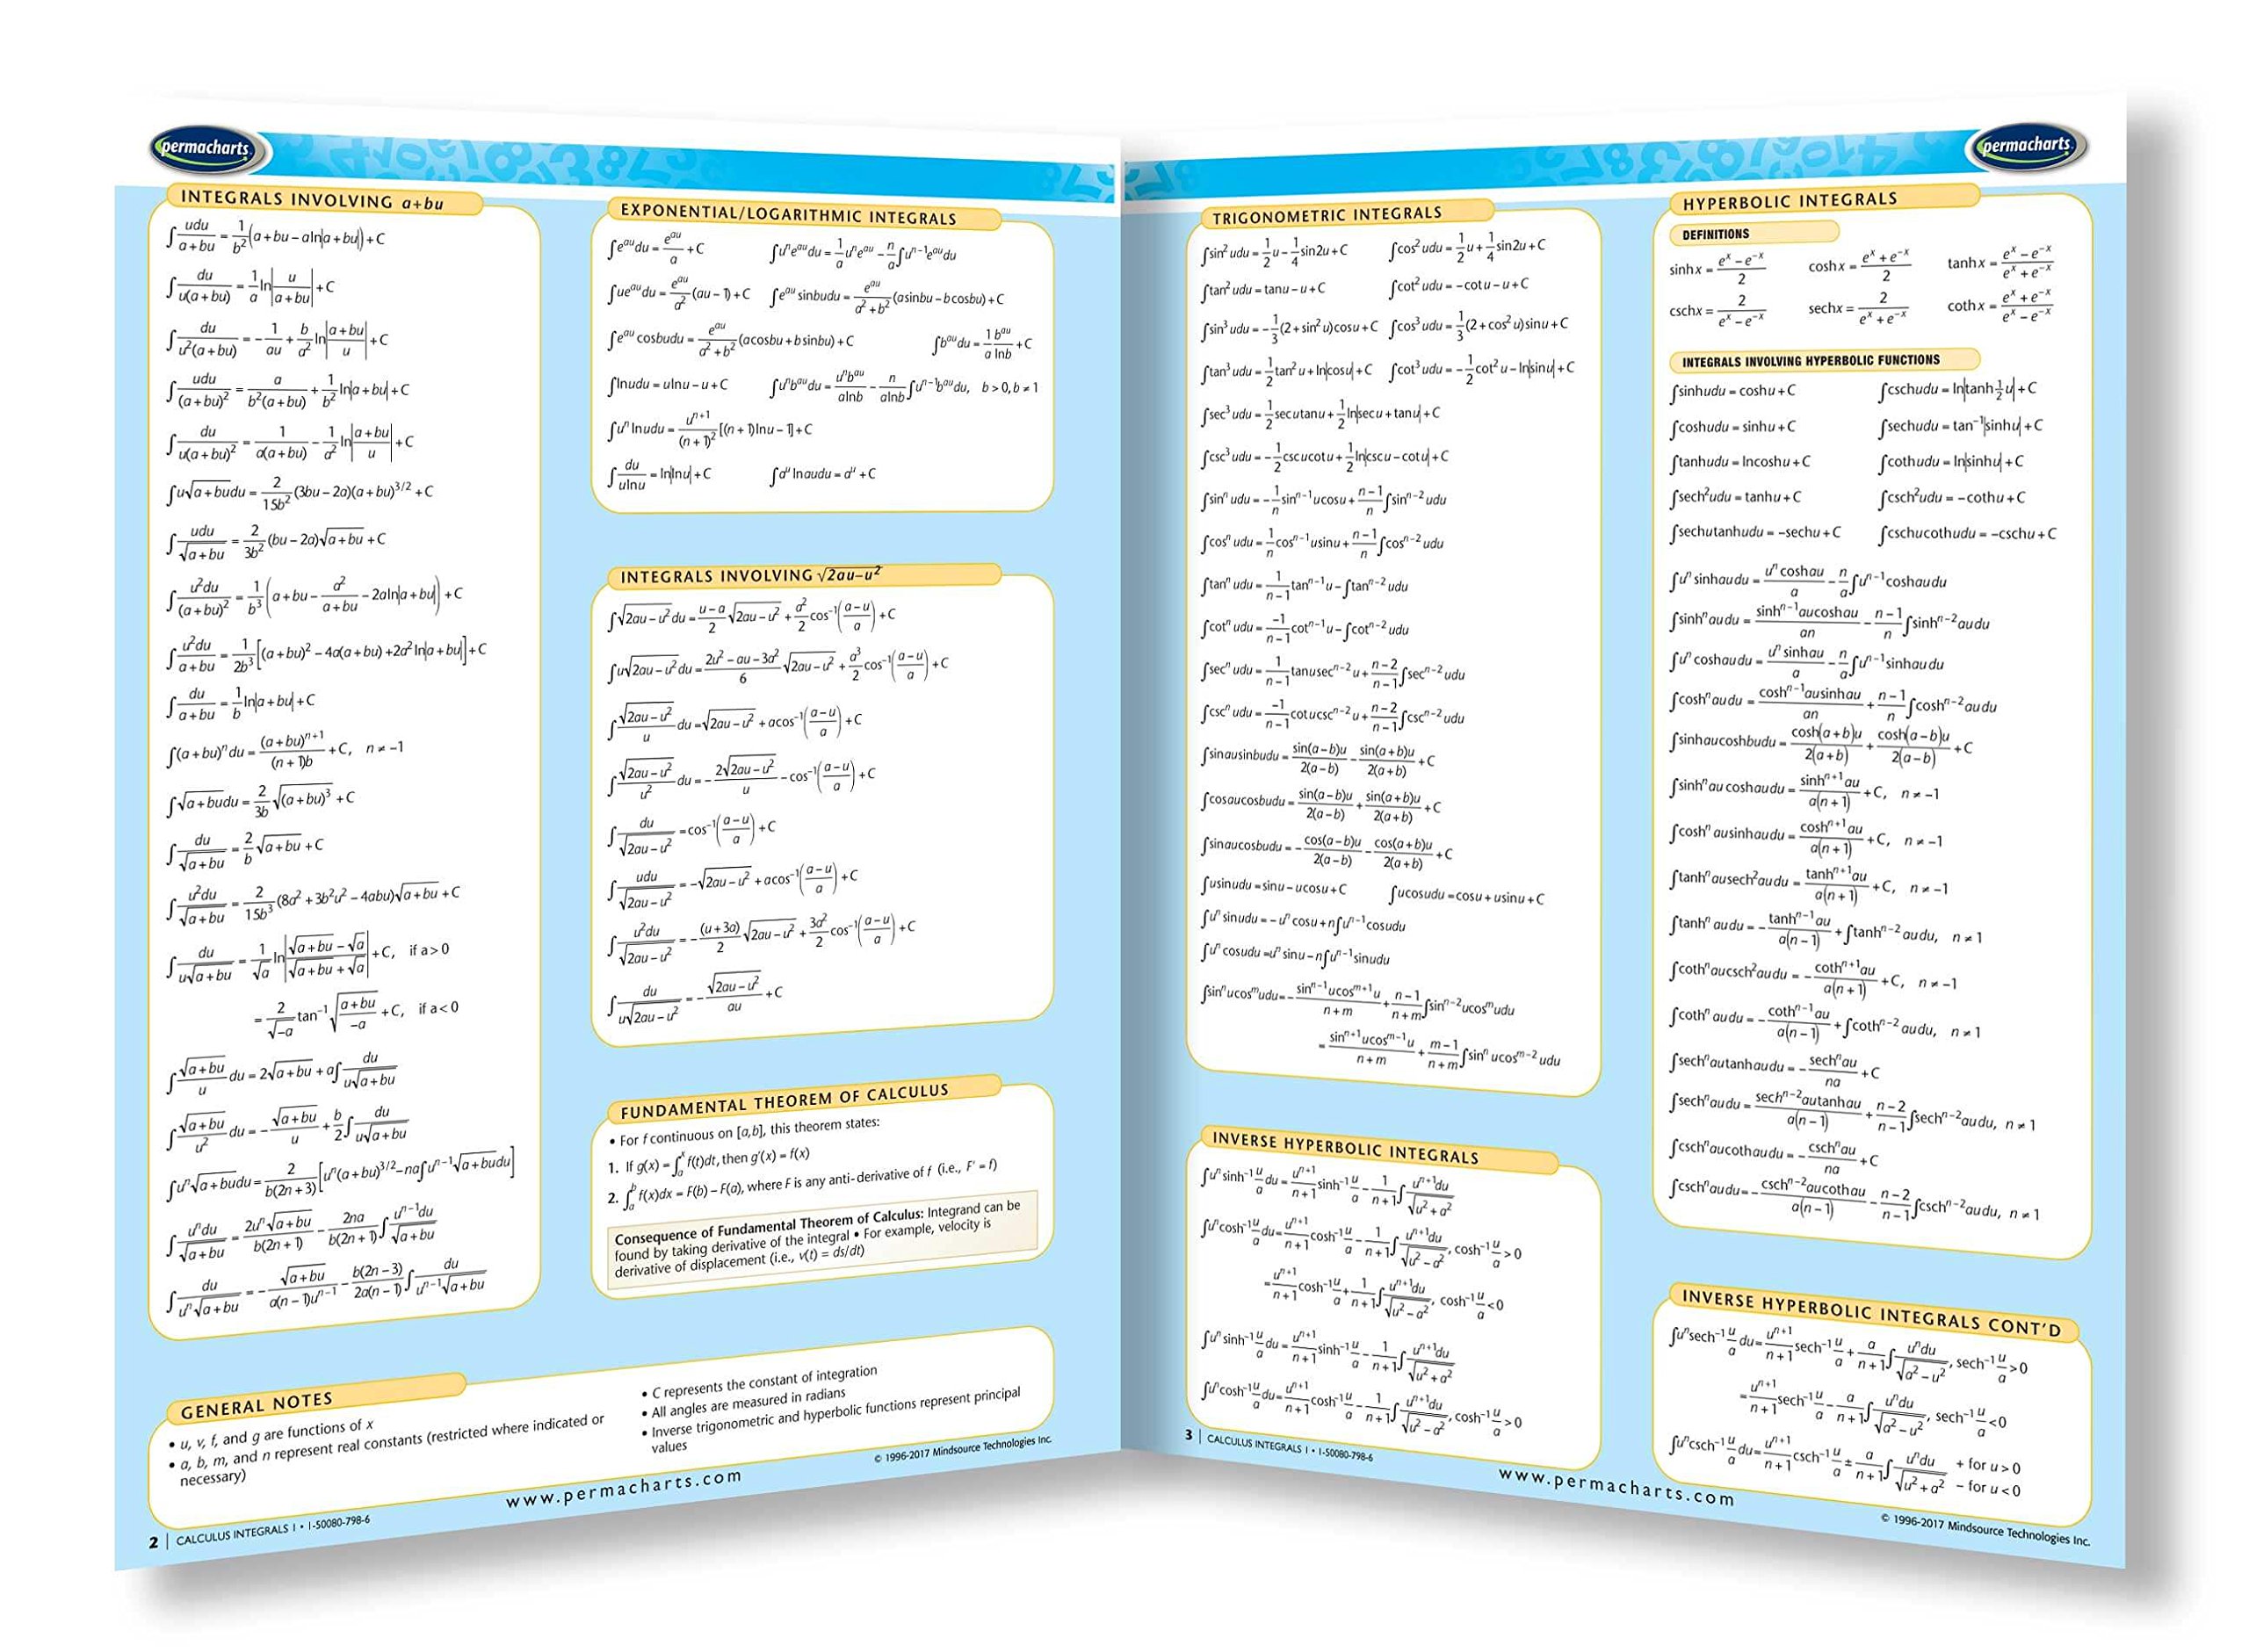 permacharts
INTEGRALS INVOLVING a+bu
∫ udu/(a+bu) = 1/b² (a+bu – aln|a+bu|) + C
∫ du/(u(a+bu)) = 1/a ln|u/(a+bu)| + C
∫ du/(u²(a+bu)) = – 1/(au) + b/a² ln|(a+bu)/u| + C
∫ udu/(a+bu)² = a/(b²(a+bu)) + 1/b² ln|a+bu| + C
∫ du/(u(a+bu)²) = 1/(a(a+bu)) – 1/a² ln|(a+bu)/u| + C
∫u√(a+bu)du = 2/(15b²) (3bu – 2a)(a+bu)^(3/2) + C
∫ udu/√(a+bu) = 2/(3b²) (bu – 2a)√(a+bu) + C
∫ u²du/(a+bu)² = 1/b³ (a+bu – a²/(a+bu) – 2aln|a+bu|) + C
∫ u²du/(a+bu) = 1/(2b³) [(a+bu)² – 4a(a+bu) + 2a² ln|a+bu|] + C
∫ du/(a+bu) = 1/b ln|a+bu| + C
∫(a+bu)ⁿdu = (a+bu)^(n+1)/((n+1)b) + C, n ≠ –1
∫√(a+bu)du = 2/(3b) √(a+bu)³ + C
∫ du/√(a+bu) = 2/b √(a+bu) + C
∫ u²du/√(a+bu) = 2/(15b³) (8a² + 3b²u² – 4abu)√(a+bu) + C
∫ du/(u√(a+bu)) = 1/√a ln|(√(a+bu) – √a)/(√(a+bu) + √a)| + C, if a>0
= 2/√(–a) tan⁻¹√((a+bu)/–a) + C, if a<0
∫ √(a+bu)/u du = 2√(a+bu) + a∫ du/(u√(a+bu))
∫ √(a+bu)/u² du = – √(a+bu)/u + b/2 ∫ du/(u√(a+bu))
∫uⁿ√(a+bu)du = 2/(b(2n+3)) [uⁿ(a+bu)^(3/2) – na∫u^(n–1)√(a+bu)du]
∫ uⁿdu/√(a+bu) = 2uⁿ√(a+bu)/(b(2n+1)) – 2na/(b(2n+1)) ∫ u^(n–1)du/√(a+bu)
∫ du/(uⁿ√(a+bu)) = – √(a+bu)/(a(n–1)u^(n–1)) – b(2n–3)/(2a(n–1)) ∫ du/(u^(n–1)√(a+bu))
EXPONENTIAL/LOGARITHMIC INTEGRALS
∫e^(au)du = e^(au)/a + C ∫uⁿe^(au)du = 1/a uⁿe^(au) – n/a ∫u^(n–1)e^(au)du
∫ue^(au)du = e^(au)/a² (au – 1) + C ∫e^(au) sinbudu = e^(au)/(a²+b²) (asinbu – bcosbu) + C
∫e^(au) cosbudu = e^(au)/(a²+b²) (acosbu + bsinbu) + C ∫b^(au)du = 1/a b^(au)/lnb + C
∫lnudu = ulnu – u + C ∫uⁿb^(au)du = uⁿb^(au)/(alnb) – n/(alnb) ∫u^(n–1)b^(au)du, b>0, b≠1
∫uⁿ lnudu = u^(n+1)/(n+1)² [(n+1)lnu – 1] + C
∫ du/(ulnu) = ln|lnu| + C ∫a^u lnaudu = a^u + C
INTEGRALS INVOLVING √(2au–u²)
∫√(2au–u²)du = (u–a)/2 √(2au–u²) + a²/2 cos⁻¹((a–u)/a) + C
∫u√(2au–u²)du = (2u²–au–3a²)/6 √(2au–u²) + a³/2 cos⁻¹((a–u)/a) + C
∫ √(2au–u²)/u du = √(2au–u²) + acos⁻¹((a–u)/a) + C
∫ √(2au–u²)/u² du = – 2√(2au–u²)/u – cos⁻¹((a–u)/a) + C
∫ du/√(2au–u²) = cos⁻¹((a–u)/a) + C
∫ udu/√(2au–u²) = –√(2au–u²) + acos⁻¹((a–u)/a) + C
∫ u²du/√(2au–u²) = – (u+3a)/2 √(2au–u²) + 3a²/2 cos⁻¹((a–u)/a) + C
∫ du/(u√(2au–u²)) = – √(2au–u²)/(au) + C
FUNDAMENTAL THEOREM OF CALCULUS
• For f continuous on [a,b], this theorem states:
1. If g(x) = ∫ₐˣ f(t)dt, then g′(x) = f(x)
2. ∫ₐᵇ f(x)dx = F(b) – F(a), where F is any anti-derivative of f (i.e., F′ = f)
Consequence of Fundamental Theorem of Calculus: Integrand can be
found by taking derivative of the integral • For example, velocity is
derivative of displacement (i.e., v(t) = ds/dt)
GENERAL NOTES
• u, v, f, and g are functions of x
• a, b, m, and n represent real constants (restricted where indicated or
necessary)
• C represents the constant of integration
• All angles are measured in radians
• Inverse trigonometric and hyperbolic functions represent principal
values
© 1996-2017 Mindsource Technologies Inc.
www.permacharts.com
2 | CALCULUS INTEGRALS I • 1-50080-798-6
permacharts
TRIGONOMETRIC INTEGRALS
∫sin² udu = 1/2 u – 1/4 sin2u + C ∫cos² udu = 1/2 u + 1/4 sin2u + C
∫tan² udu = tanu – u + C ∫cot² udu = –cotu – u + C
∫sin³ udu = – 1/3 (2 + sin² u)cosu + C ∫cos³ udu = 1/3 (2 + cos² u)sinu + C
∫tan³ udu = 1/2 tan² u + ln|cosu| + C ∫cot³ udu = – 1/2 cot² u – ln|sinu| + C
∫sec³ udu = 1/2 secutanu + 1/2 ln|secu + tanu| + C
∫csc³ udu = – 1/2 cscucotu + 1/2 ln|cscu – cotu| + C
∫sinⁿ udu = – 1/n sin^(n–1) ucosu + (n–1)/n ∫sin^(n–2) udu
∫cosⁿ udu = 1/n cos^(n–1) usinu + (n–1)/n ∫cos^(n–2) udu
∫tanⁿ udu = 1/(n–1) tan^(n–1) u – ∫tan^(n–2) udu
∫cotⁿ udu = –1/(n–1) cot^(n–1) u – ∫cot^(n–2) udu
∫secⁿ udu = 1/(n–1) tanusec^(n–2) u + (n–2)/(n–1) ∫sec^(n–2) udu
∫cscⁿ udu = –1/(n–1) cotucsc^(n–2) u + (n–2)/(n–1) ∫csc^(n–2) udu
∫sinausinbudu = sin(a–b)u/2(a–b) – sin(a+b)u/2(a+b) + C
∫cosaucosbudu = sin(a–b)u/2(a–b) + sin(a+b)u/2(a+b) + C
∫sinaucosbudu = – cos(a–b)u/2(a–b) – cos(a+b)u/2(a+b) + C
∫usinudu = sinu – ucosu + C ∫ucosudu = cosu + usinu + C
∫uⁿ sinudu = – uⁿ cosu + n∫u^(n–1) cosudu
∫uⁿ cosudu = uⁿ sinu – n∫u^(n–1) sinudu
∫sinⁿucosᵐudu = – sin^(n–1)ucos^(m+1)u/(n+m) + (n–1)/(n+m) ∫sin^(n–2)ucosᵐudu
= sin^(n+1)ucos^(m–1)u/(n+m) + (m–1)/(n+m) ∫sinⁿ ucos^(m–2) udu
INVERSE HYPERBOLIC INTEGRALS
∫uⁿ sinh⁻¹ u/a du = u^(n+1)/(n+1) sinh⁻¹ u/a – 1/(n+1) ∫ u^(n+1)du/√(u²+a²)
∫uⁿcosh⁻¹ u/a du = u^(n+1)/(n+1) cosh⁻¹ u/a – 1/(n+1) ∫ u^(n+1)du/√(u²–a²), cosh⁻¹ u/a > 0
= u^(n+1)/(n+1) cosh⁻¹ u/a + 1/(n+1) ∫ u^(n+1)du/√(u²–a²), cosh⁻¹ u/a < 0
∫uⁿ sinh⁻¹ u/a du = u^(n+1)/(n+1) sinh⁻¹ u/a – 1/(n+1) ∫ u^(n+1)du/√(u²+a²)
∫uⁿcosh⁻¹ u/a du = u^(n+1)/(n+1) cosh⁻¹ u/a – 1/(n+1) ∫ u^(n+1)du/√(u²–a²), cosh⁻¹ u/a > 0
3 | CALCULUS INTEGRALS I • 1-50080-798-6
HYPERBOLIC INTEGRALS
DEFINITIONS
sinhx = (eˣ – e⁻ˣ)/2 coshx = (eˣ + e⁻ˣ)/2 tanhx = (eˣ – e⁻ˣ)/(eˣ + e⁻ˣ)
cschx = 2/(eˣ – e⁻ˣ) sechx = 2/(eˣ + e⁻ˣ) cothx = (eˣ + e⁻ˣ)/(eˣ – e⁻ˣ)
INTEGRALS INVOLVING HYPERBOLIC FUNCTIONS
∫sinhudu = coshu + C ∫cschudu = ln|tanh 1/2 u| + C
∫coshudu = sinhu + C ∫sechudu = tan⁻¹|sinhu| + C
∫tanhudu = lncoshu + C ∫cothudu = ln|sinhu| + C
∫sech²udu = tanhu + C ∫csch²udu = –cothu + C
∫sechutanhudu = –sechu + C ∫cschucothudu = –cschu + C
∫uⁿ sinhaudu = uⁿ coshau/a – n/a ∫u^(n–1)coshaudu
∫sinhⁿaudu = sinh^(n–1)aucoshau/an – (n–1)/n ∫sinh^(n–2)audu
∫uⁿ coshaudu = uⁿ sinhau/a – n/a ∫u^(n–1)sinhaudu
∫coshⁿaudu = cosh^(n–1)ausinhau/an + (n–1)/n ∫cosh^(n–2)audu
∫sinhaucoshbudu = cosh(a+b)u/2(a+b) + cosh(a–b)u/2(a–b) + C
∫sinhⁿau coshaudu = sinh^(n+1)au/a(n+1) + C, n ≠ –1
∫coshⁿ ausinhaudu = cosh^(n+1)au/a(n+1) + C, n ≠ –1
∫tanhⁿ ausech²audu = tanh^(n+1)au/a(n+1) + C, n ≠ –1
∫tanhⁿ audu = – tanh^(n–1)au/a(n–1) + ∫tanh^(n–2)audu, n ≠ 1
∫cothⁿaucsch²audu = – coth^(n+1)au/a(n+1) + C, n ≠ –1
∫cothⁿaudu = – coth^(n–1)au/a(n–1) + ∫coth^(n–2)audu, n ≠ 1
∫sechⁿautanhaudu = – sechⁿau/na + C
∫sechⁿaudu = sech^(n–2)autanhau/a(n–1) + (n–2)/(n–1) ∫sech^(n–2)audu, n ≠ 1
∫cschⁿaucothaudu = – cschⁿau/na + C
∫cschⁿaudu = – csch^(n–2)aucothau/a(n–1) – (n–2)/(n–1) ∫csch^(n–2)audu, n ≠ 1
INVERSE HYPERBOLIC INTEGRALS CONT'D
∫uⁿsech⁻¹ u/a du = u^(n+1)/(n+1) sech⁻¹ u/a + a/(n+1) ∫ uⁿdu/√(a²–u²), sech⁻¹ u/a > 0
= u^(n+1)/(n+1) sech⁻¹ u/a – a/(n+1) ∫ uⁿdu/√(a²–u²), sech⁻¹ u/a < 0
∫uⁿcsch⁻¹ u/a du = u^(n+1)/(n+1) csch⁻¹ u/a ± a/(n+1) ∫ uⁿdu/√(u²+a²) + for u>0
– for u<0
www.permacharts.com
© 1996-2017 Mindsource Technologies Inc.